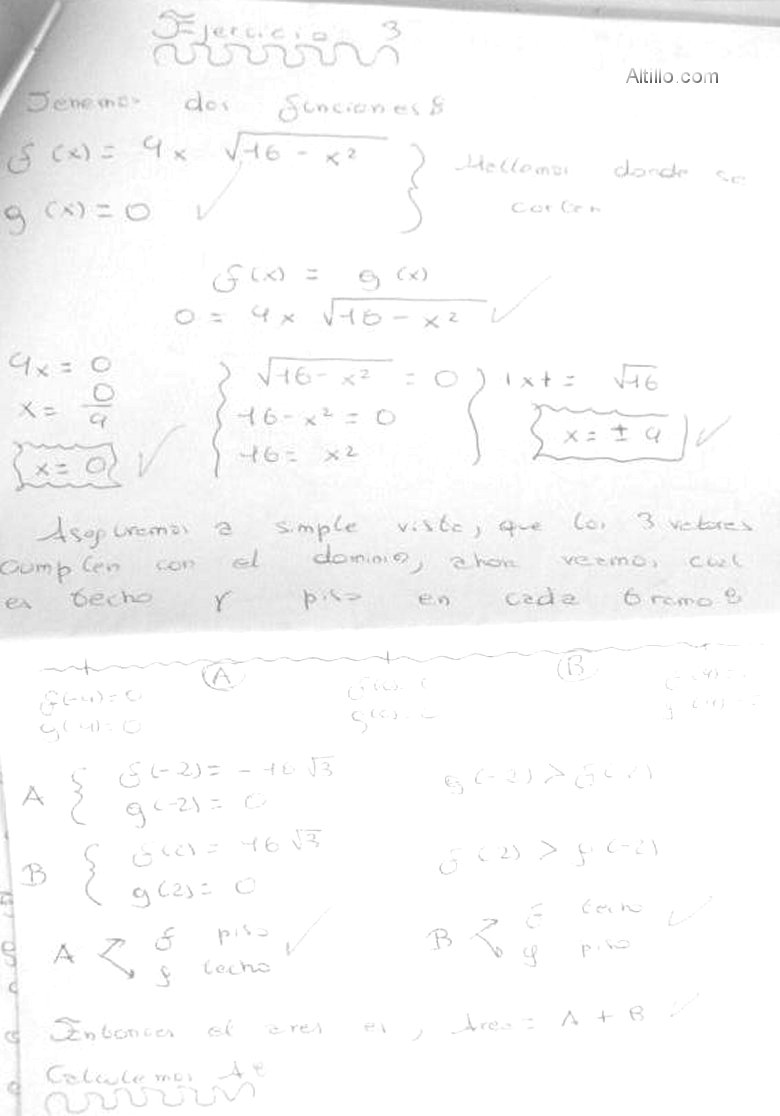 Ejercicio 3
Altillo.com
Tenemos dos funciones:
f(x) = 4x √16 - x²
g(x) = 0
Hallamos donde se
corten
f(x) = g(x)
0 = 4x √16 - x²
4x = 0
x = 0/4
x = 0
√16 - x² = 0
16 - x² = 0
16 = x²
|x| = √16
x = ± 4
a simple vista, que los 3 valores
cumplen con el dominio, ahora veamos cual
es techo y piso en cada tramo:
A B
f(-4) = 0
g(-4) = 0
A { f(-2) = -16 √3
g(-2) = 0
g(-2) >
B { f(2) = 16 √3
g(2) = 0
f(2) > g(-2)
A f piso
g techo
B f techo
g piso
Entonces el area es, Area = A + B
Calculemos A: